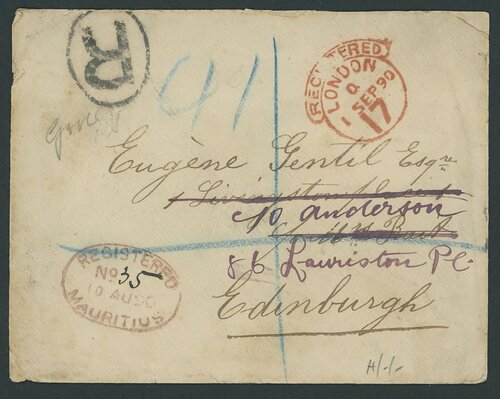 R
41
REGISTERED
LONDON
Q
1 SEP 90
17
Eugène Gentil Esqre
1 Livingston place
c/o Anderson
86 Lauriston Pl.
Edinburgh
REGISTERED
No 35
10 AU 90
MAURITIUS